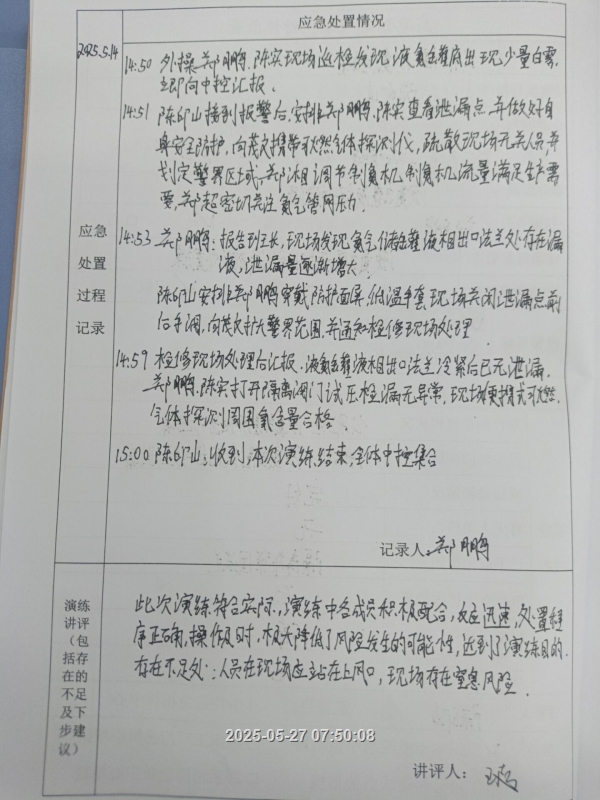 应急处置情况
2025.5.14
应急
处置
过程
记录
14:50 外操郑鹏鹏、陈实现场巡检发现液氮储罐底出现少量白雾,
立即向中控汇报。
14:51 陈邱山接到报警后,安排郑鹏鹏、陈实查看泄漏点,并做好自
身安全防护,向茂文携带可燃气体探测仪,疏散现场无关人员并
划定警界区域,郑湘调节制氮机,制氮机流量满足生产需
要,郑超密切关注氮气管网压力.
14:53 郑鹏鹏:报告班长,现场发现氮气储罐液相出口法兰处存在漏
液,泄漏量逐渐增大.
陈邱山安排郑鹏鹏穿戴防护面屏,低温手套现场关闭泄漏点前
后手阀,向茂文扩大警界范围,并通知检修现场处理.
14:59 检修现场处理后汇报,液氮储罐液相出口法兰冷紧后已无泄漏,
郑鹏鹏、陈实打开隔离阀门试压检漏无异常,现场便携式可燃
气体探测周围氧含量合格.
15:00 陈邱山:收到,本次演练结束,全体中控集合
记录人:郑鹏鹏
演练
讲评
(包
括存
在的
不足
及下
步建
议)
此次演练符合实际,演练中各成员积极配合,反应迅速,处置程
序正确,操作及时,极大降低了风险发生的可能性,达到了演练目的.
存在不足处:人员在现场应站在上风口,现场存在窒息风险.
2025-05-27 07:50:08
讲评人: